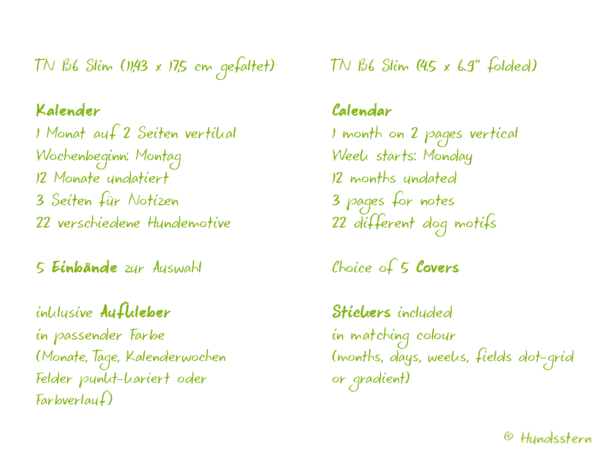 TN B6 Slim (11,43 x 17,5 cm gefaltet)
Kalender
1 Monat auf 2 Seiten vertikal
Wochenbeginn: Montag
12 Monate undatiert
3 Seiten für Notizen
22 verschiedene Hundemotive
5 Einbände zur Auswahl
inklusive Aufkleber
in passender Farbe
(Monate, Tage, Kalenderwochen
Felder punkt-kariert oder
Farbverlauf)
TN B6 Slim (4.5 x 6.9" folded)
Calendar
1 month on 2 pages vertical
Week starts: Monday
12 months undated
3 pages for notes
22 different dog motifs
Choice of 5 Covers
Stickers included
in matching colour
(months, days, weeks, fields dot-grid
or gradient)
© Hundsstern